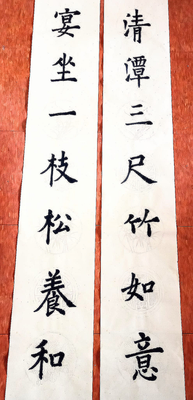 清潭三尺竹如意
宴坐一枝松養和